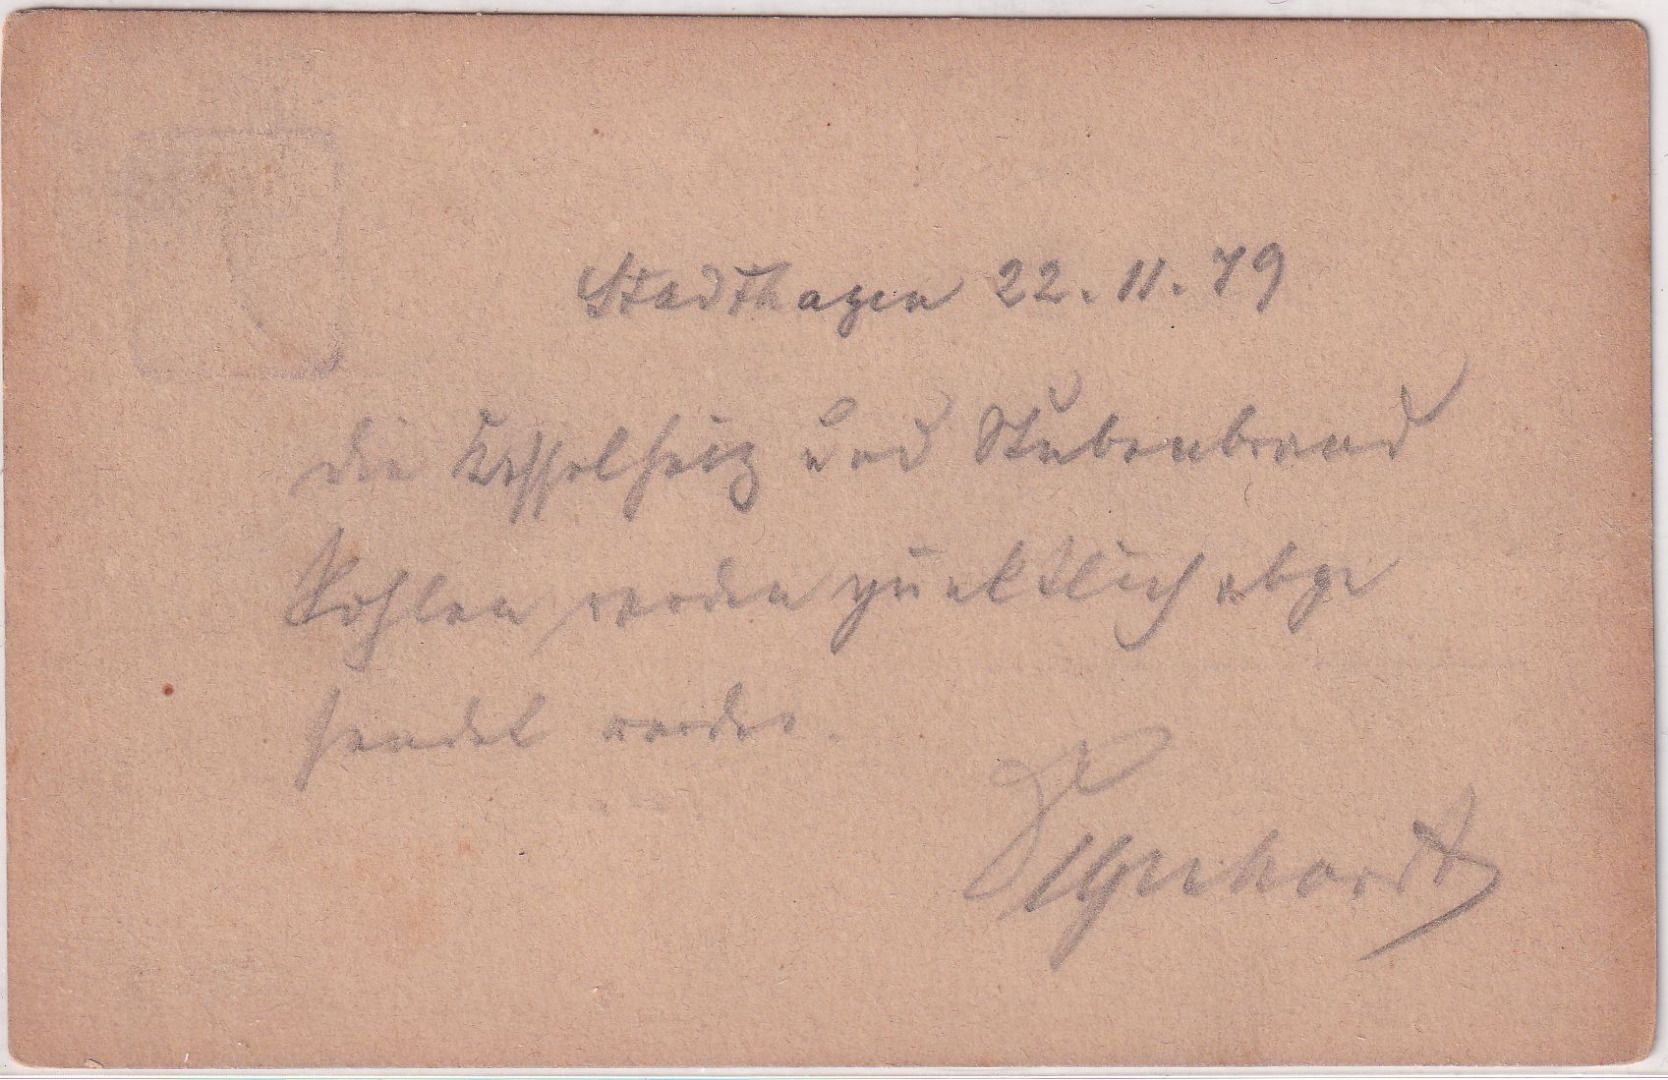 Stadthagen 22.11.79
die Kesselheiz und Stubenbrand
Kohlen werden pünktlich abge
sendet werden.